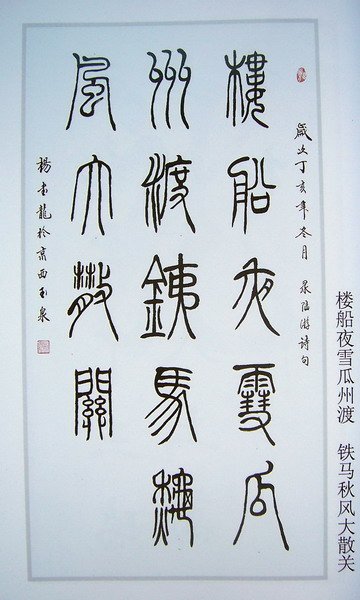 楼船夜雪瓜州渡 铁马秋风大散关
歲次丁亥年冬月 录陆游詩句
樓船夜雪瓜
州渡銕馬秋
風大散關
楊書龍於京西玉泉